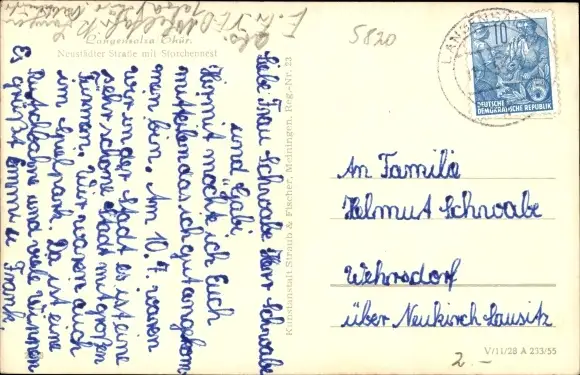 Langensalza Thür.
Neustädter Straße mit Storchennest
Liebe Frau Schwabe Herr Schwabe
und Gabi
Hiermit möchte ich Euch
mitteilen das ich gut angekom
men bin. Am 10.7. waren
wir in der Stadt es ist eine
sehr schöne Stadt mit großen
Türmen. Wir waren auch
im Kulpark. Da ist eine
Rutschbahne und viele Blumen
Es grüßt Emmi u Frank.
Kunstanstalt Straub & Fischer, Meiningen, Reg.-Nr. 23
5820
LANGENSALZA
10
DEUTSCHE
DEMOKRATISCHE REPUBLIK
5
An Familie
Helmut Schwabe
Wehrsdorf
über Neukirch Lausitz
2.-
V/11/28 A 233/55